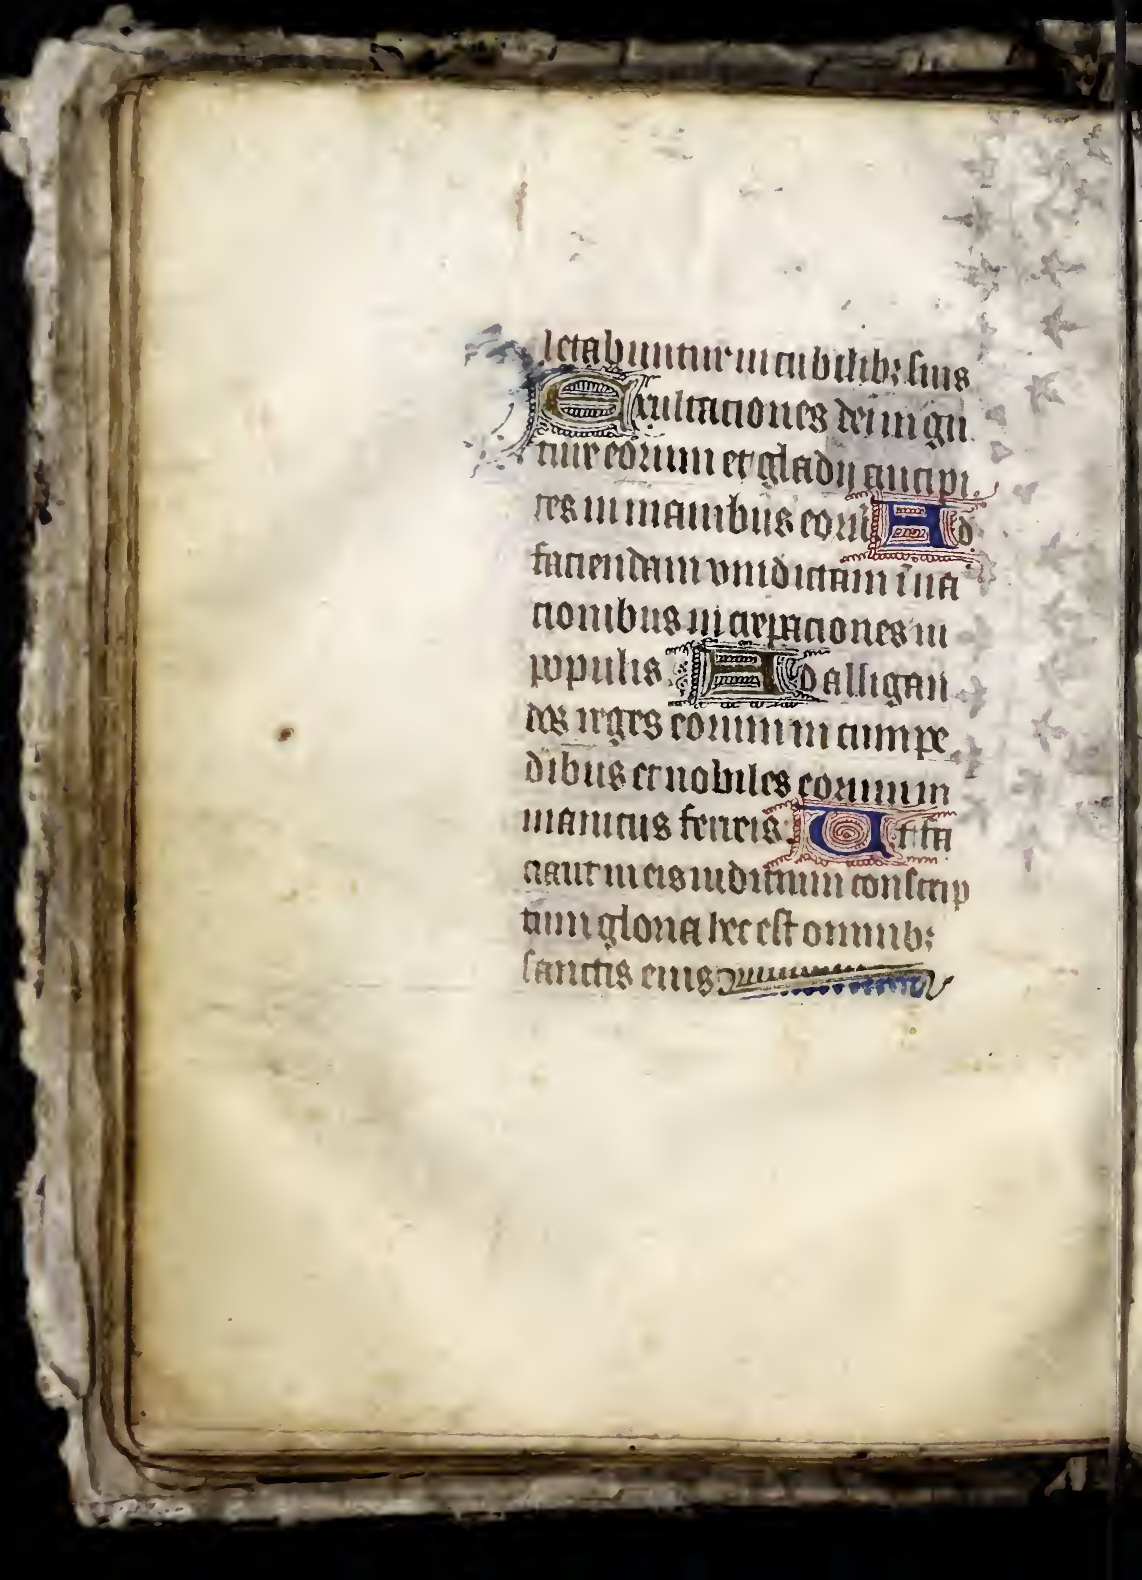 letabuntur in cubilib; suis
Exultationes dei in gu
ture eorum et gladij ancipi
tes in manibus eorū Ad
faciendam vindictam ī na
cionibus increpaciones in
populis. Ad alligan
dos reges eorum in compe
dibus et nobiles eorum in
manicus ferreis: Ut fa
ciant in eis iudicium conscrip
tum gloria hec est omnib;
sanctis eius